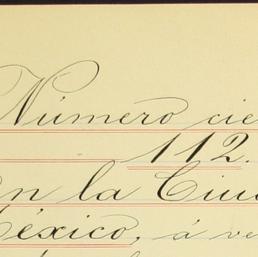 Número cie
112.
En la Ciud
México, á ve